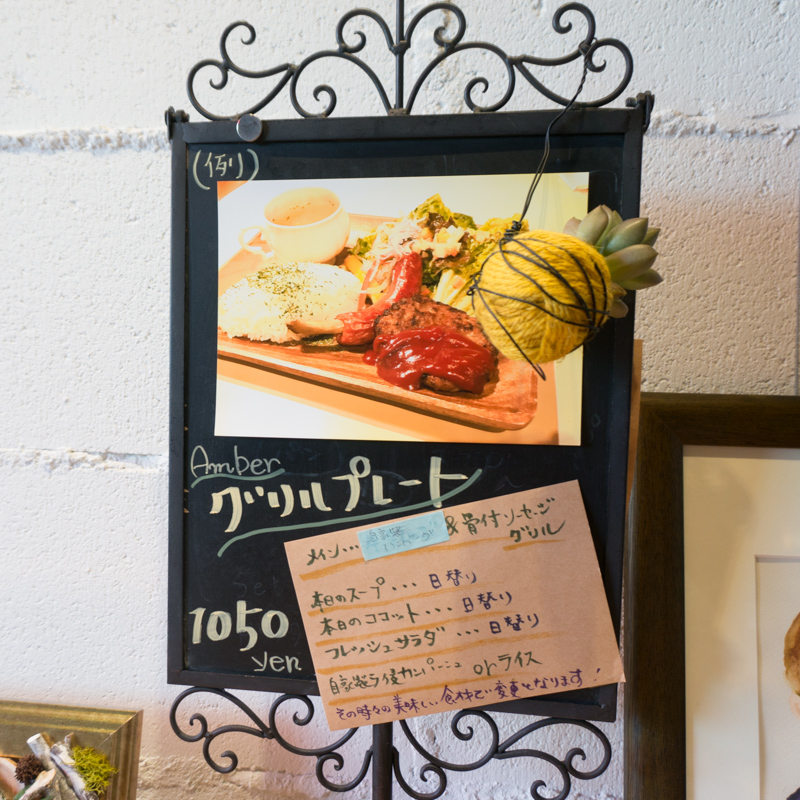 (例)
Amber
グリルプレート
1050
yen
メイン…
&骨付ソーセージ
グリル
本日のスープ・・・日替り
本日のココット・・・日替り
フレッシュサラダ・・・日替り
自家製カンパーニュ orライス
その時々の美味しい食材で変更となります!